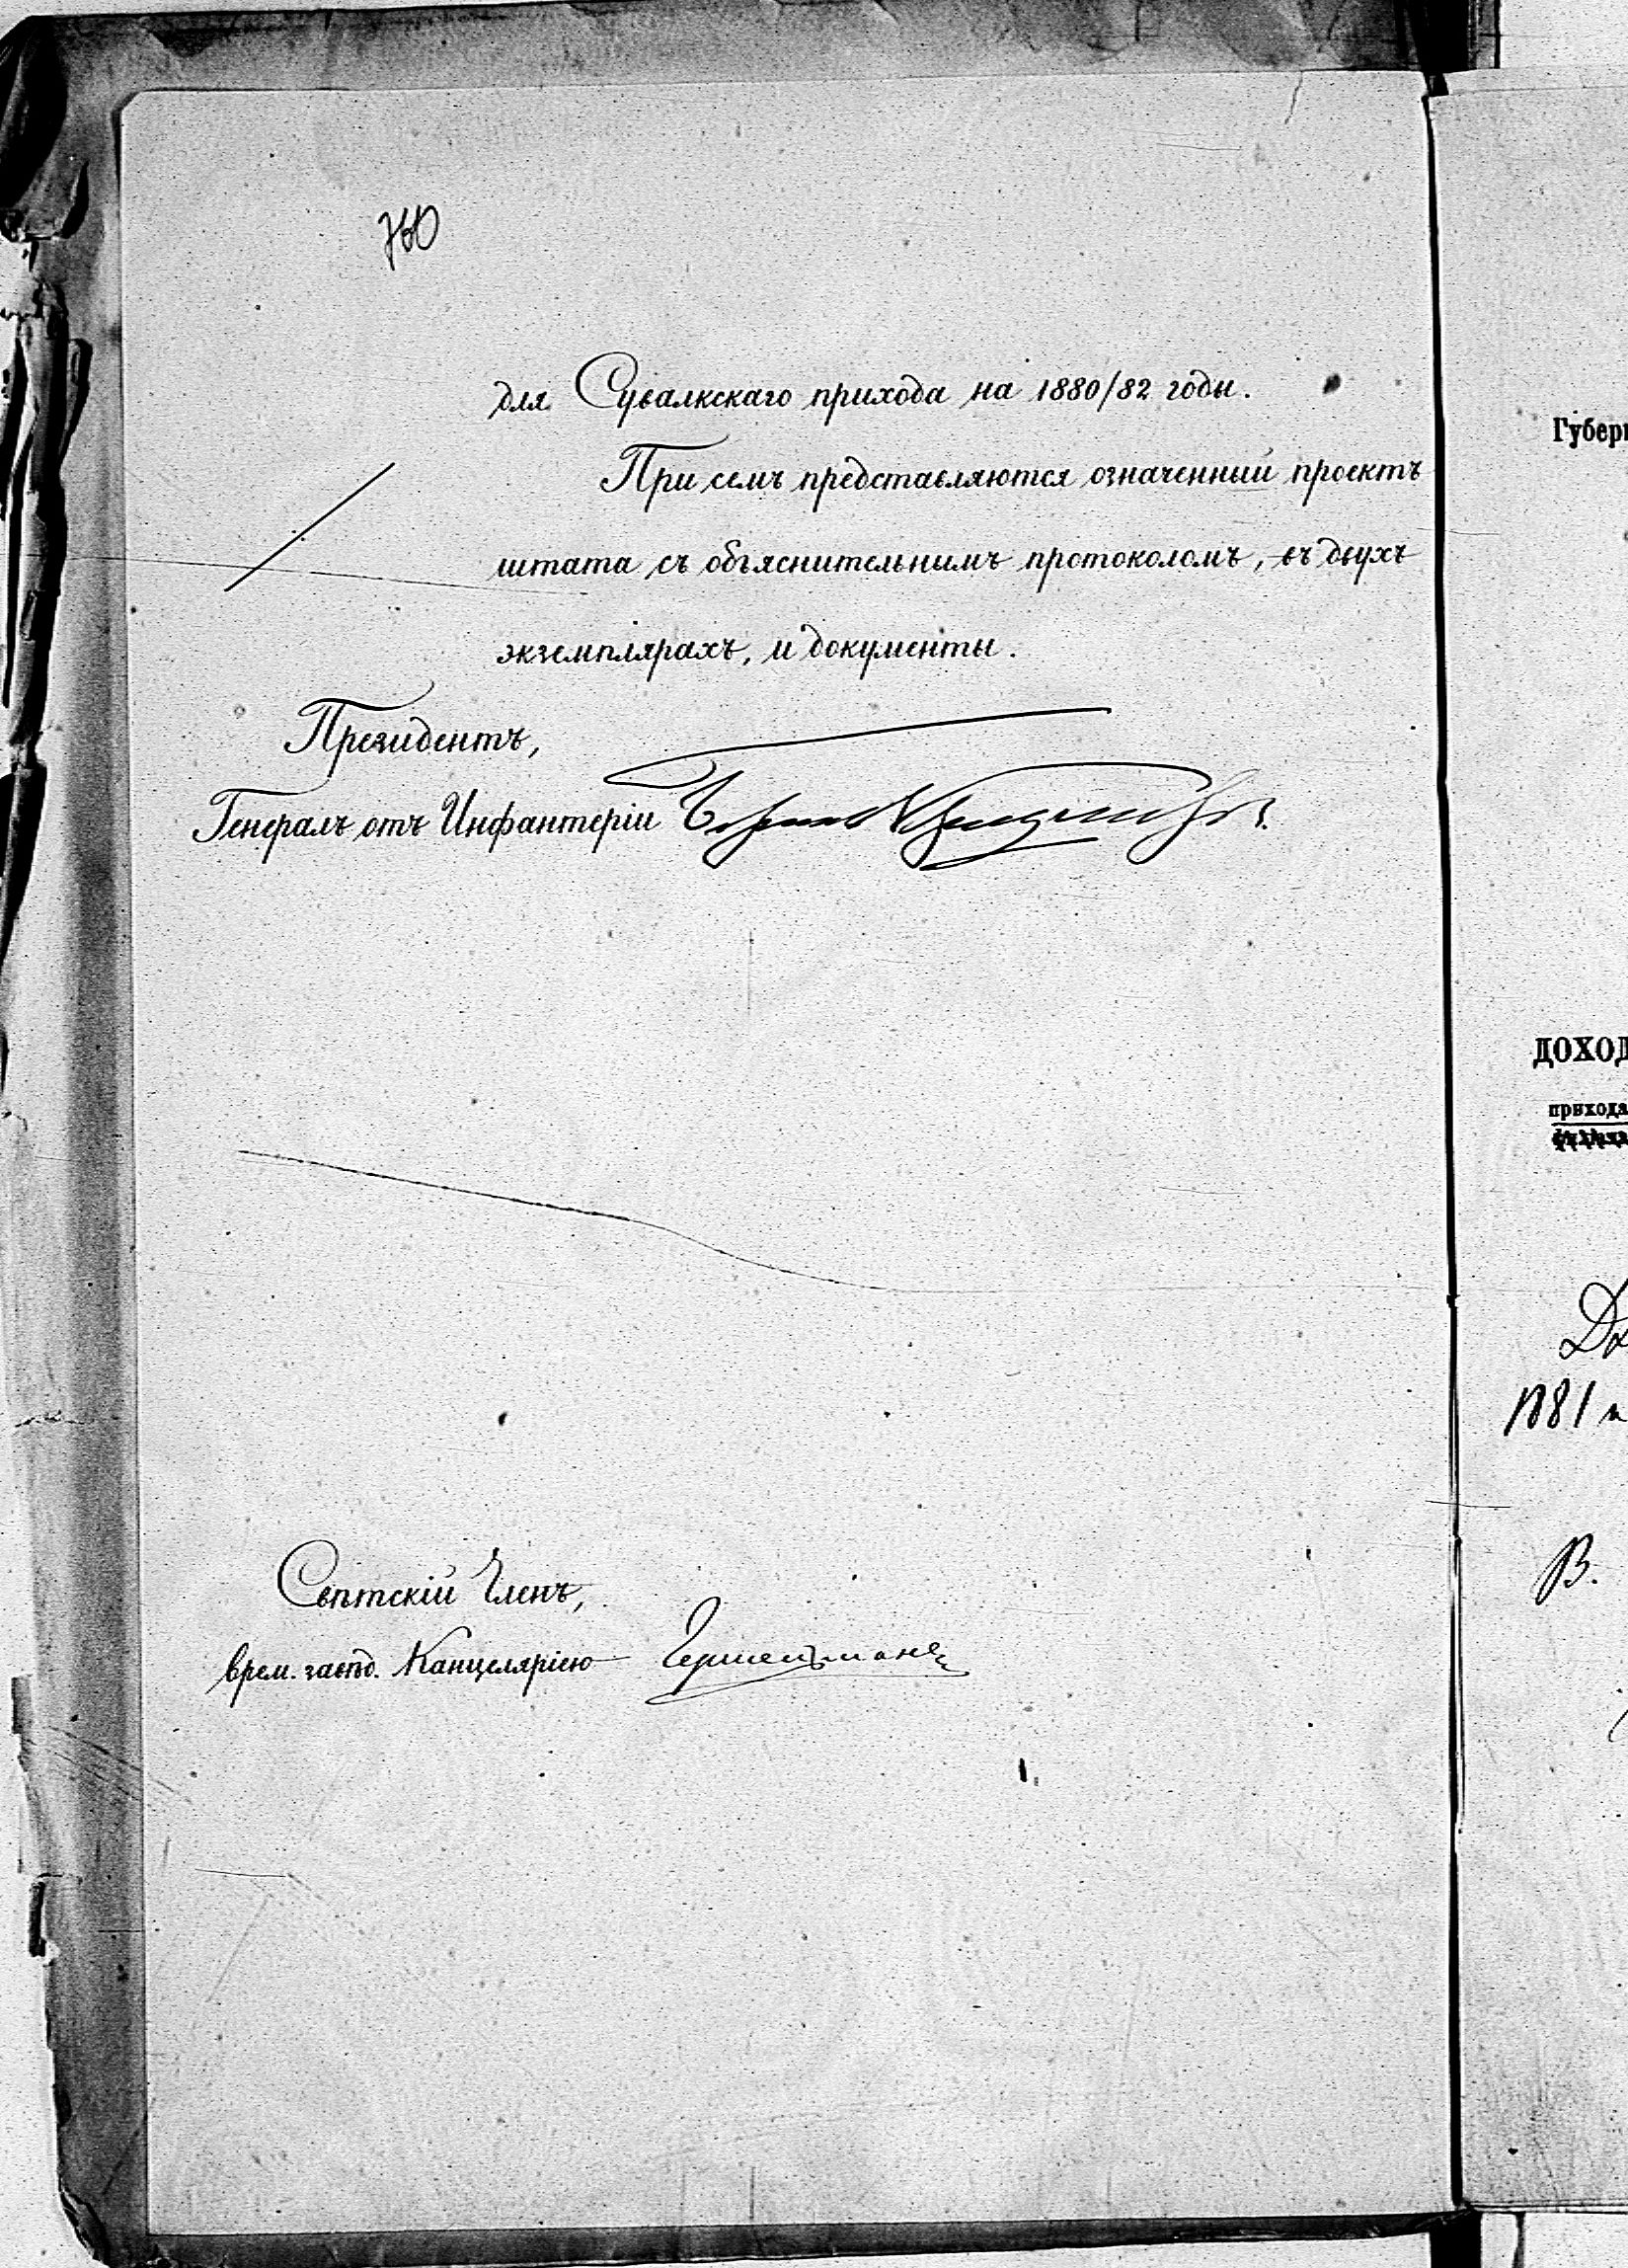 760
для Сувалкскаго прихода на 1880/82 годы.
При семъ представляются означенный проектъ
штата съ объяснительнымъ протоколомъ, въ двухъ
экземплярахъ, и документы.
Президентъ,
Генералъ отъ Инфантеріи
Свѣтскій Членъ,
врем. завѣд. Канцеляріею
Губерн
ДОХОД
прихода
1881
В.